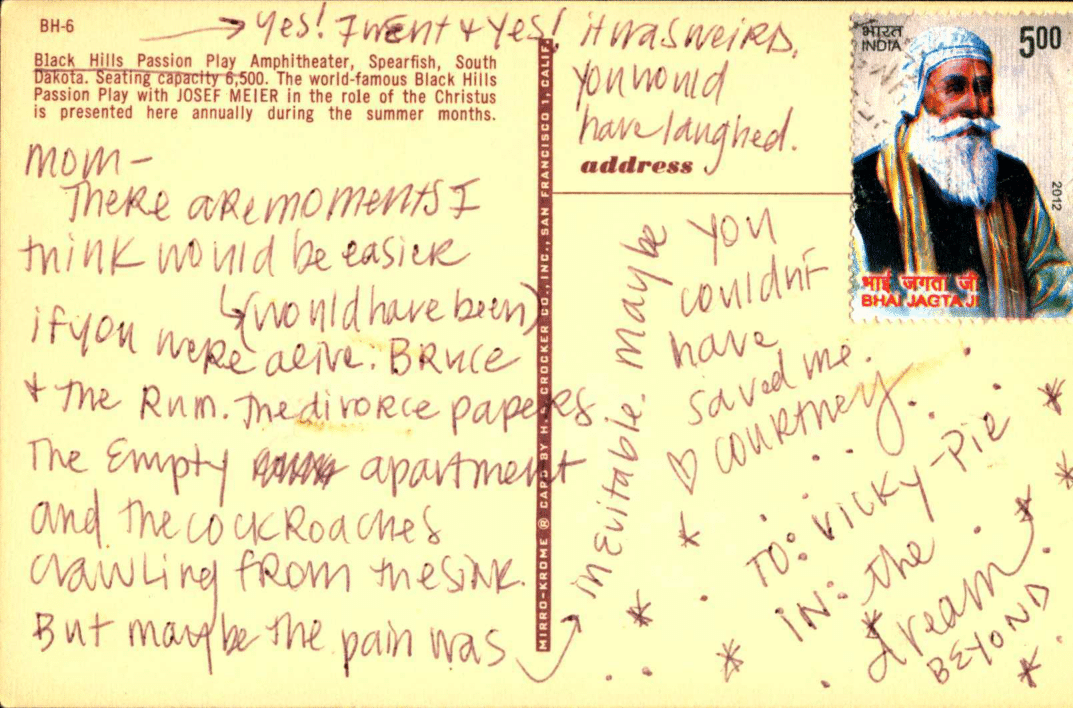 BH-6
Black Hills Passion Play Amphitheater, Spearfish, South
Dakota. Seating capacity 6,500. The world-famous Black Hills
Passion Play with JOSEF MEIER in the role of the Christus
is presented here annually during the summer months.
Yes! I went & Yes! it was weird.
You would
have laughed.
address
MOM-
There are moments I
think would be easier
(would have been)
if you were alive. Bruce
& the Rum. The divorce papers
The Empty apartment
and the cockroaches
crawling from the sink.
But maybe the pain was
inevitable. Maybe
you
couldn't
have
saved me.
♡ Courtney.
TO: VICKY-PIE
IN: the
dream
BEYOND
MIRRO-KROME ® CARD BY H. S. CROCKER CO., INC., SAN FRANCISCO 1, CALIF.
भारत
INDIA
500
2012
भाई जगता जी
BHAI JAGTA JI